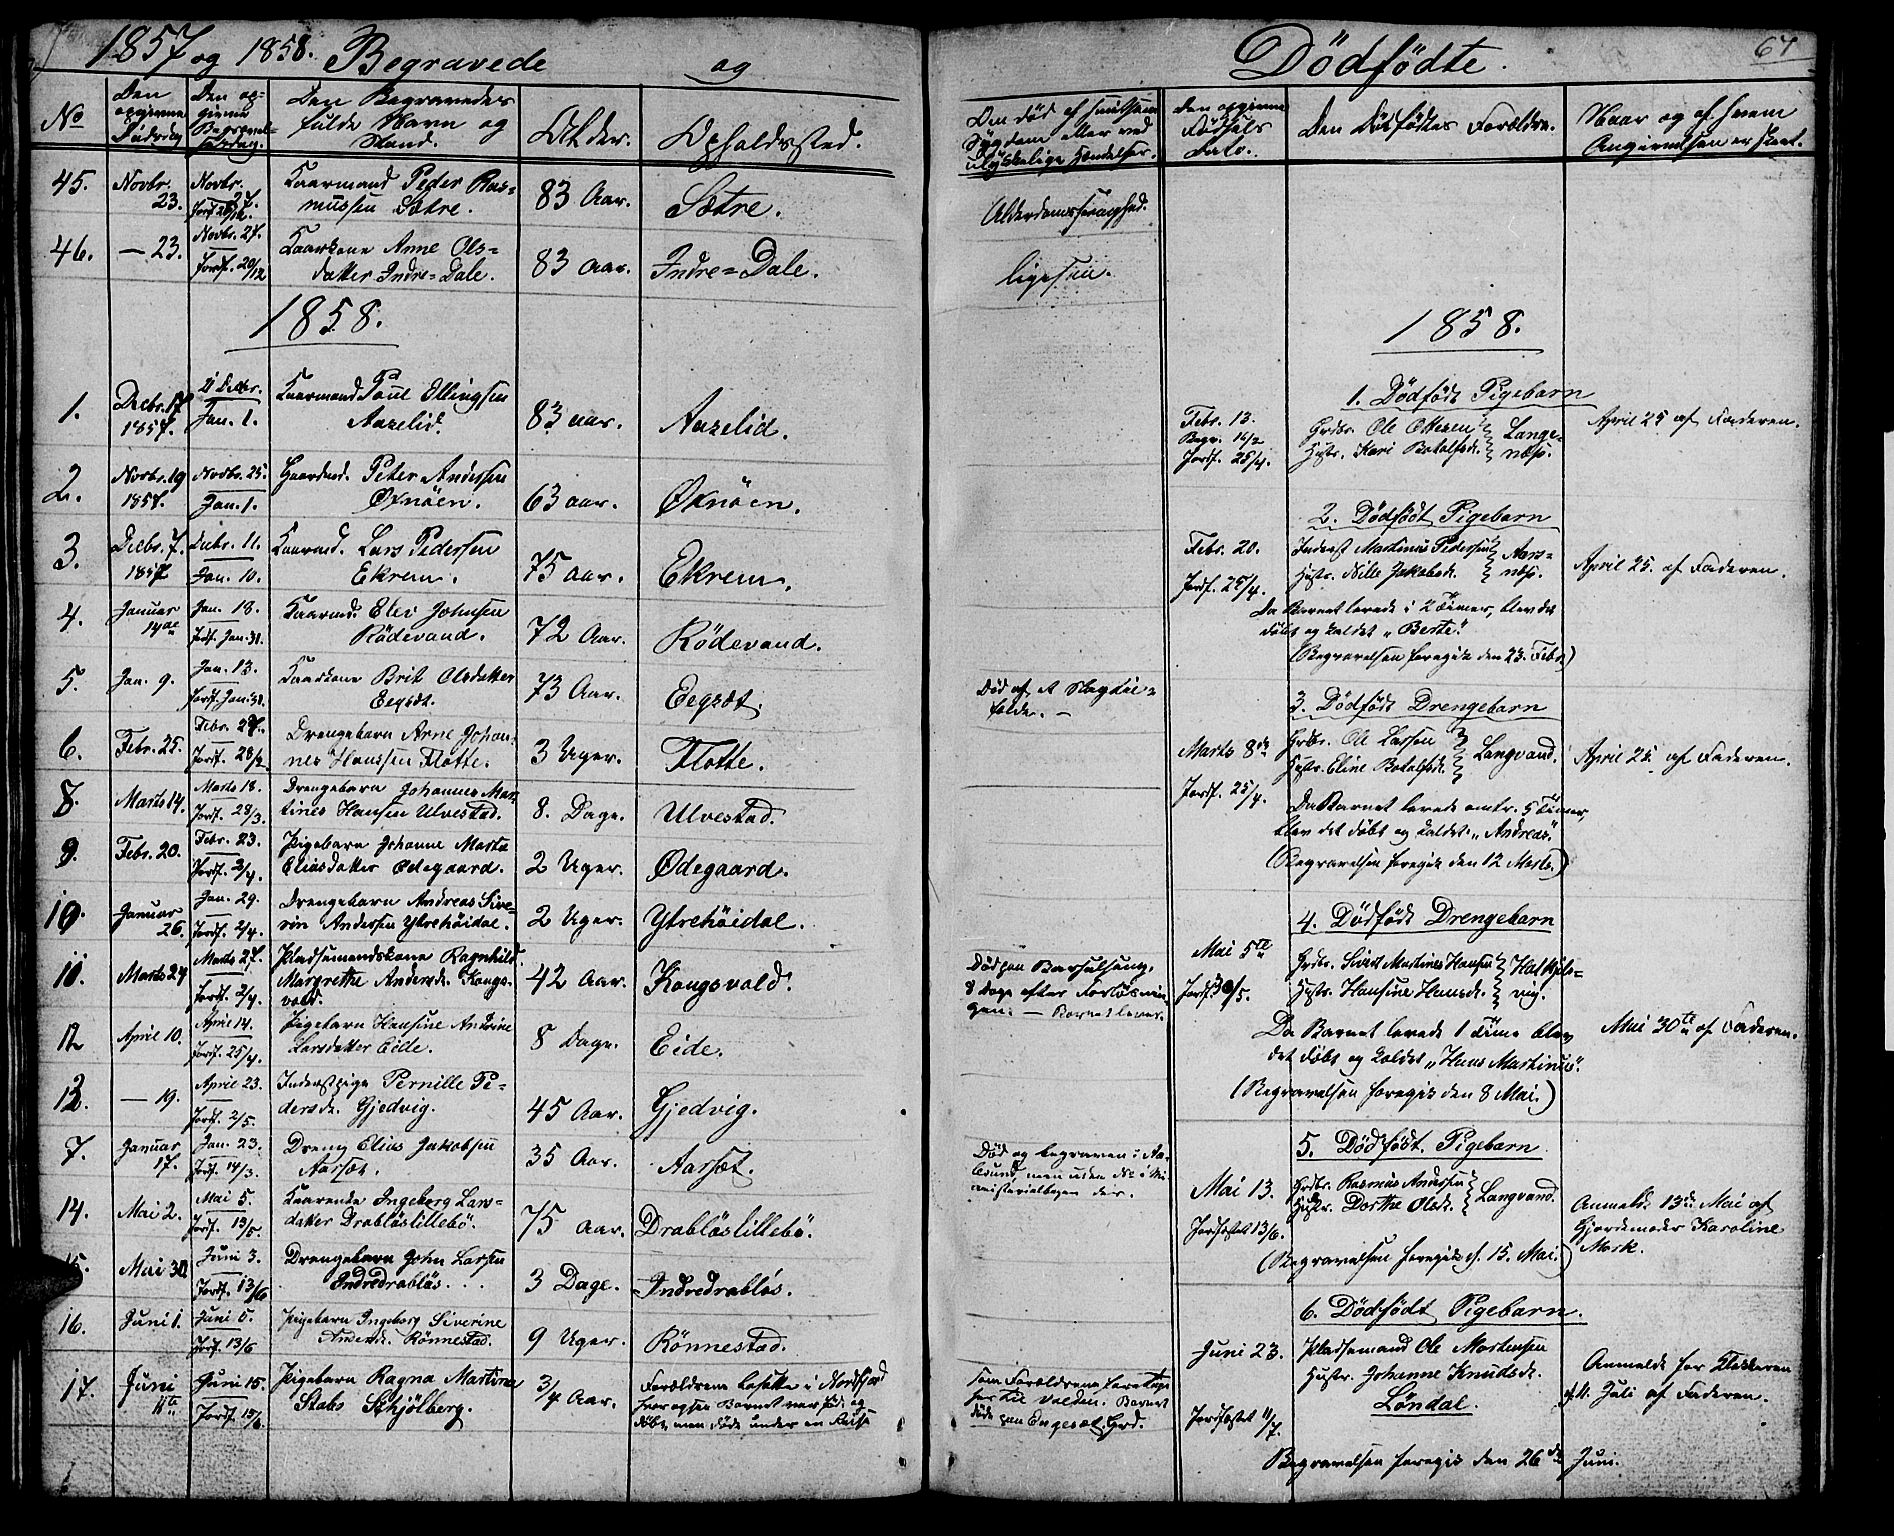 1857 og 1858. Begravede og
No
Den opgivne Dødsdag
Den opgivne Begravelsesdag.
Den Begravedes fulde Navn og Stand.
Alder.
Opholdsted.
45.
Novbr. 23.
Novbr. 27.
Kaarmand Peder Rasmussen Sætre.
83 Aar.
Sætre.
46.
— 23.
Novbr. 27.
Jordf. 20/12
Kaarkone Anne Olsdatter Indre=Dale.
83 Aar.
Indre=Dale.
1858.
1.
Decbr. 17 1857.
21 Decbr.
Jan. 1.
Kaarmand Poul Ellingsen Aarelid.
83 aar.
Aarelid.
2.
Novbr. 19 1857.
Novbr. 25.
Jan. 1.
Gaardmd. Peter Andersen Øxnöen.
63 aar.
Øxnöen.
3.
Decbr. 7. 1857
Decbr. 11.
Jan. 10.
Kaarmd. Lars Pedersen Ekrem.
75 aar.
Ekrem.
4.
Januar 14de
Jan. 18.
Jordf. Jan. 31.
Kaarmd. Elev Johnsen Rödevand.
72 Aar.
Rödevand.
5.
Jan. 9.
Jan. 13.
Jordf. Jan. 31.
Kaarkone Brit Olsdatter Eegsæt.
73 Aar.
Eegsæt.
6.
Febr. 25.
Febr. 27.
Jordf. 28/2
Drengebarn Arne Johannes Hanssen Flotte.
3 Uger.
Flotte.
8.
Marts 14.
Marts 18.
Jordf. 28/3.
Drengebarn Johannes Martines Hansen Ulvestad.
8. Dage.
Ulvestad.
9.
Febr. 20.
Febr. 23.
Jordf. 2/4.
Pigebarn Johanne Marta Eliasdatter Ødegaard.
2 Uger.
Ødegaard.
10.
Januar 26.
Jan. 29.
Jordf. 2/4.
Drengebarn Andreas Siverin Andersen Ytrehöidal.
2 Uger.
Ytrehöidal.
11.
Marts 24
Marts 27.
Jordf. 2/4.
Pladsemandskone Ragnhild Margrethe Andersd. Kongsvold.
42 Aar.
Kongsvold.
12
April 10.
April 14.
Jordf. 25/4.
Pigebarn Hansine Andrine Larsdatter Eide.
8 Dage.
Eide.
13.
— 19.
April 23.
Jordf. 2/5.
Inderstpige Pernille Pedersd. Gjedvig.
45 Aar.
Gjedvig.
7.
Januar 17.
Jan. 23.
Jordf. 14/3.
Dreng Elias Jakobsen Aarsæt.
35 Aar.
Aarsæt.
14.
Mai 2.
Mai 5.
Jordf. 13/5.
Kaarenke Ingeborg Larsdatter Drablöslillebö.
75 aar.
Drablöslillebö.
15.
Mai 30
Juni 3.
Jordf. 13/6
Drengebarn John Larsen Indredrablös.
3 Dage.
Indredrablös.
16.
Juni 1.
Juni 5.
Jordf. 13/6
Pigebarn Ingeborg Siverine Andersd. Rönnestad.
9 Uger.
Rönnestad.
17.
Juni 11te
Juni 15.
Jordf. 15/6.
Pigebarn Ragna Martine Stabs Schjölberg.
3/4 Aar.
Forældrene bosatte i Nordfjord hvor ogsaa Barnet var født og døbt, men døde under en Reise
Dödfödte. 67
Om död af smitsom Sygdom eller ved ulykkelige Hændelser.
Den opgivne Fødsels Dato.
Den Dödfödtes Forældre.
Naar og af hvem Angivelsen er skeet.
Alderdomssvaghed.
ligesaa.
Død af et Slagtilfælde. —
Død paa Barselseng, 8 Dage efter Forløsningen. — Barnet lever.
Død og begraven i Aalesund, men uden No i Ministerialbogen der.
som Forældrene foretoge hertil Volden. Barnet døde paa Engesæt Grd.
1858.
1. Dödfödt Pigebarn
Febr. 13.
Begr. 16/2
Jordf. 25/4.
Grdbr. Ole Ottesen
Hustr. Kari Botolfsd.
Langenæs.
April 25 af Faderen.
2. Dödfödt Pigebarn
Febr. 20.
Jordf. 25/4.
Inderst Martinus Pedersen
Hustr. Nille Jakobsd.
Aarsnæs.
April 25. af Faderen.
Da Barnet levede i 2 Timer, blev det
døbt og kaldet „Berte".
(Begravelsen foregik den 23. Febr.)
3. Dödfödt Drengebarn
Marts 8de
Jordf. 25/4.
Grdbr. Ole Larsen
Hustr. Eline Botolfsd.
Langvand.
April 25. af Faderen.
Da Barnet levede omtr. 5 Timer,
blev det døbt og kaldet „Andreas".
(Begravelsen foregik den 12 Marts.)
4. Dödfödt Drengebarn
Mai 5te
Jordf. 30/5.
Grdbr. Sivert Martines Hansen
Hustr. Hansine Hansd.
Halkjelsvig.
Mai 30te af Faderen.
Da Barnet levede 1 Time blev
det døbt og kaldet „Hans Martinus".
(Begravelsen foregik den 8 Mai.)
5. Dödfödt Pigebarn
Mai 13.
Jordfæstet 13/6.
Grdbr. Rasmus Andersen
Hustr. Dorthe Olsd.
Langvand.
Anmeldt 13de Mai af
Gjordemoder Karoline
Mork.
(Begravelsen foregik d. 15. Mai.)
6. Dödfödt Pigebarn.
Juni 23.
Jordfæstet 11/7.
Pladsemand Ole Mortensen
Hustr. Johanne Knudsd.
Löndal.
Anmeldt for Klokkeren
d. 11. Juli af Faderen.
Begravelsen foregik den 26de Juni.